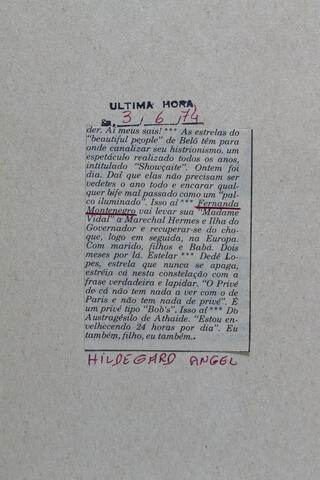 ULTIMA HORA
Em, 3, 6, 74
der. Ai meus sais! *** As estrelas do
"beautiful people" de Belô têm para
onde canalizar seu histrionismo, um
espetáculo realizado todos os anos,
intitulado "Showçaite". Ontem foi
dia. Daí que elas não precisam ser
vedetes o ano todo e encarar qual-
quer bife mal passado como um "pal-
co iluminado". Isso aí *** Fernanda
Montenegro vai levar sua "Madame
Vidal" a Marechal Hermes e Ilha do
Governador e recuperar-se do cho-
que, logo em seguida, na Europa.
Com marido, filhos e Babá. Dois
meses por lá. Estelar *** Dedê Lo-
pes, estrela que nunca se apaga,
estréia cá nesta constelação com a
frase verdadeira e lapidar. "O Privé
de cá não tem nada a ver com o de
Paris e não tem nada de privé". É
um privé tipo "Bob's". Isso aí *** Do
Austragésilo de Athaide. "Estou en-
velhecendo 24 horas por dia". Eu
também, filho, eu também..
HILDEGARD ANGEL